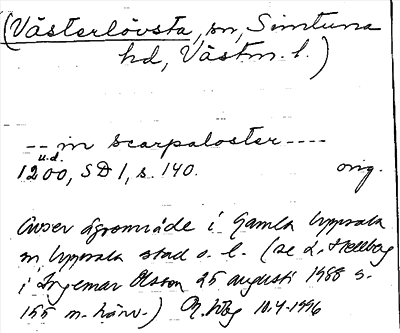 (Västerlövsta, sn, Simtuna
hd, Västm. l.)
-- in scarpaloster ----
u.d.
1200, SD 1, s. 140. orig.
Avser ägoområde i Gamla Uppsala
sn, Uppsala stad o. l. (se L. Hellberg
i Ingemar Olsson 25 augusti 1988 s.
155 m. hänv.) 10.4-1996